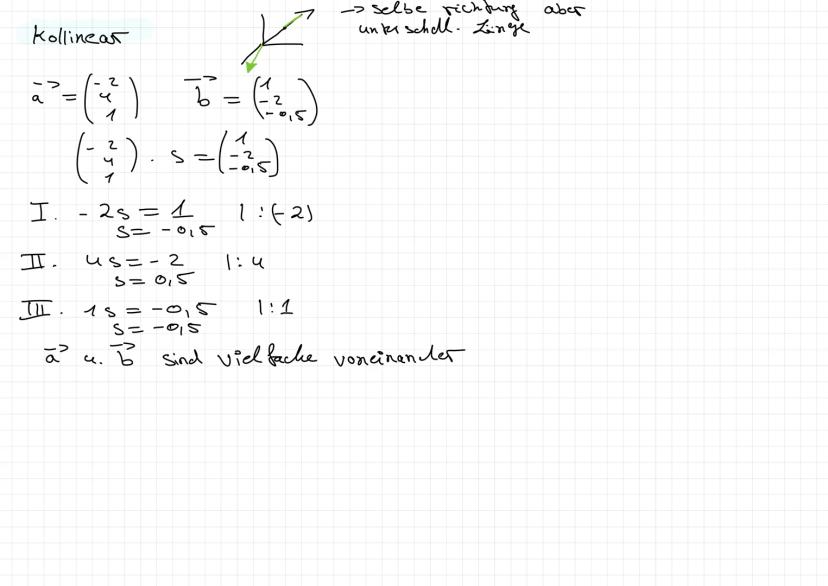 Kollinear
-> selbe richtung aber
unterschdl. Länge
a = (-2 4 1) b = (1 -2 -0,5)
(-2 4 1) · s = (1 -2 -0,5)
I. -2s = 1 |:(-2)
s = -0,5
II. 4s = -2 |:4
s = 0,5
III. 1s = -0,5 |:1
s = -0,5
a u. b sind vielfache voneinander